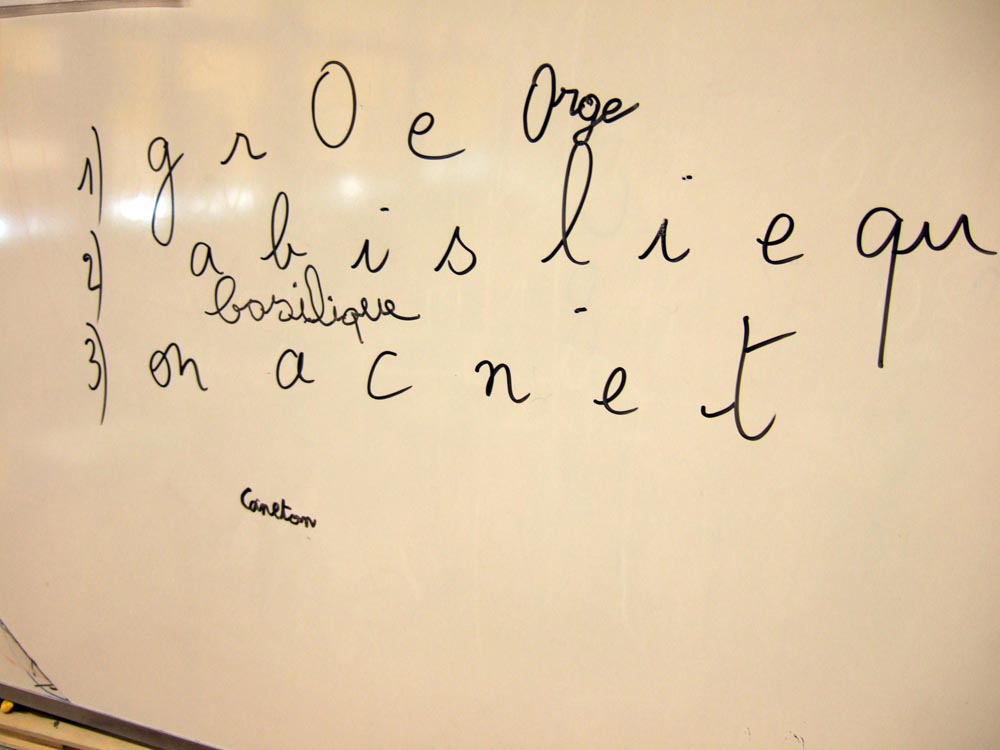 1) g r O e Orge
2) a b i s l i e qu
basilique
3) on a c n e t
Caneton